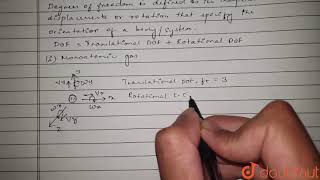 Degrees of freedom is defined to the
displacements or rotation that specify the
orientation of a body/system.
DOF = Translational DOF + Rotational DOF
(i) Monoatomic gas
Translational DOF, ft = 3
Rotational
doubtnut